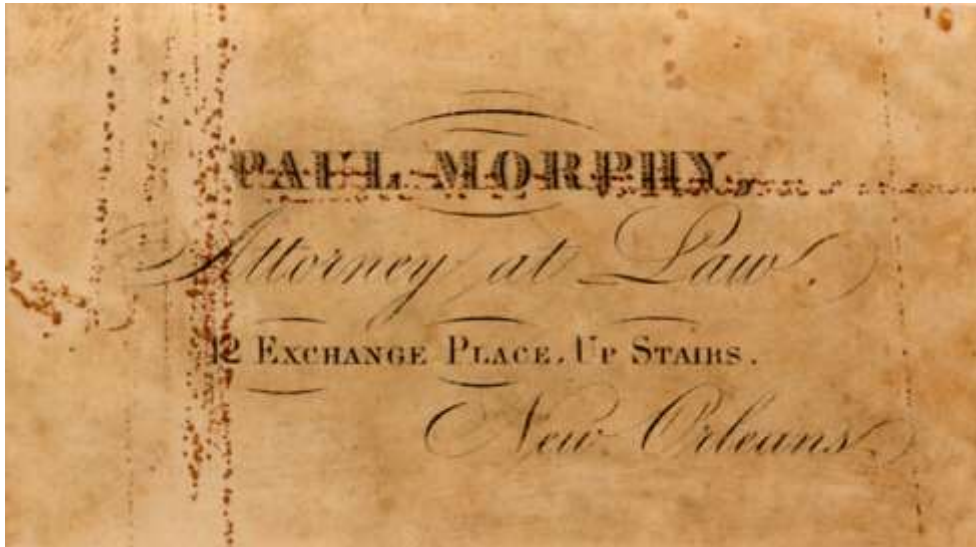 PAUL MORPHY,
Attorney at Law.
12 EXCHANGE PLACE, UP STAIRS.
New Orleans